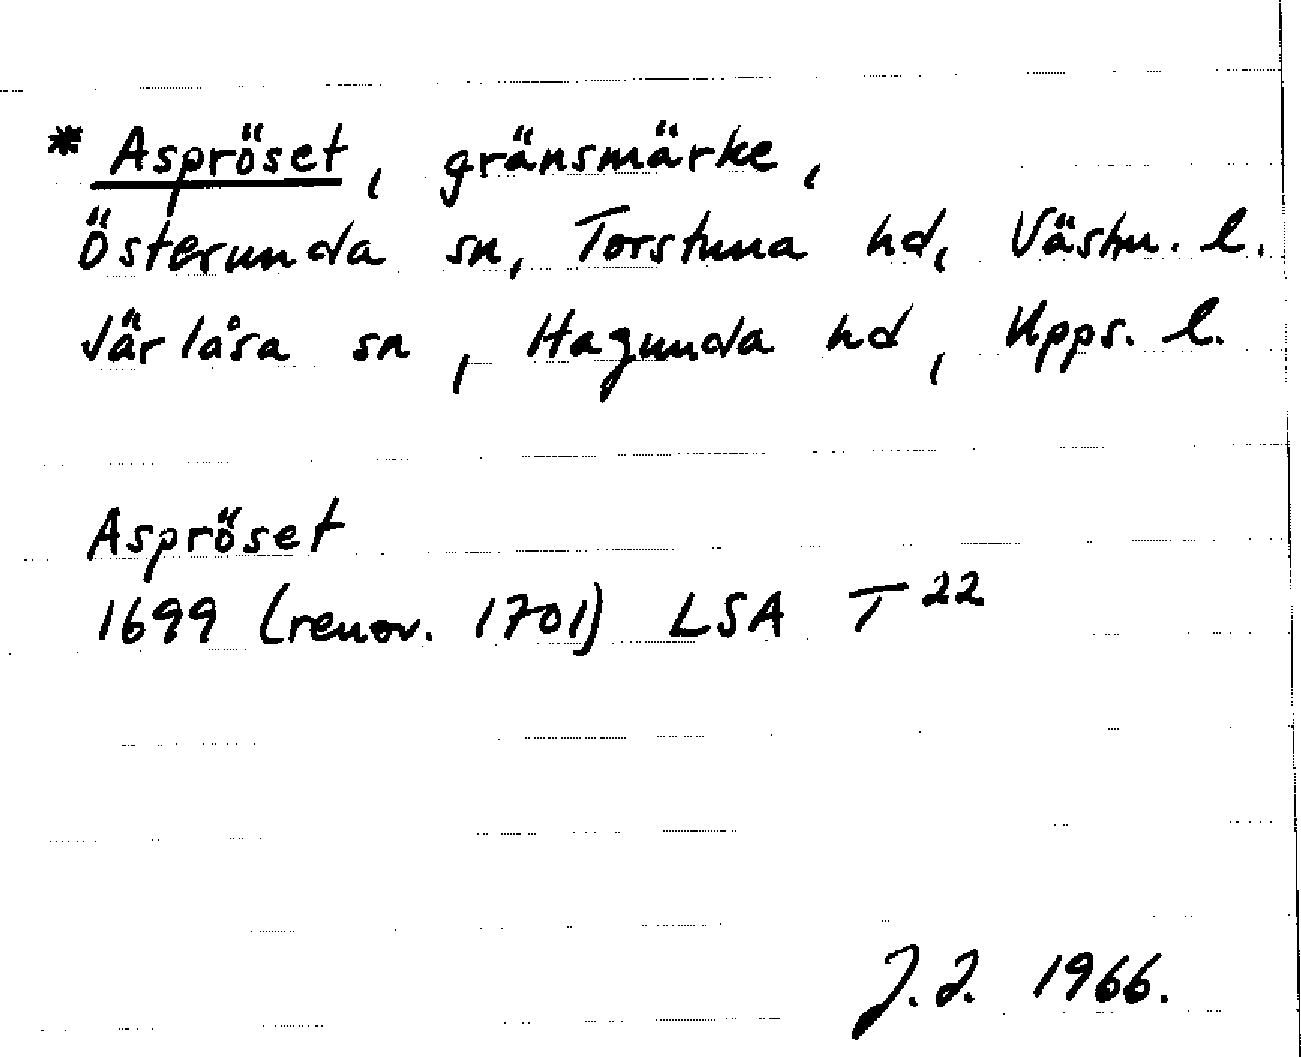 * Aspröset, gränsmärke,
Österunda sn, Torstuna hd, Västm. l.
Järlåsa sn, Hagunda hd, Upps. l.
Aspröset
1699 (renov. 1701) LSA T 22
J.J. 1966.